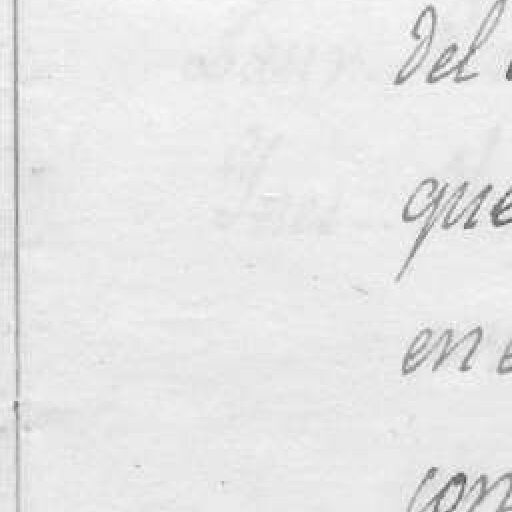 del
que
en
con